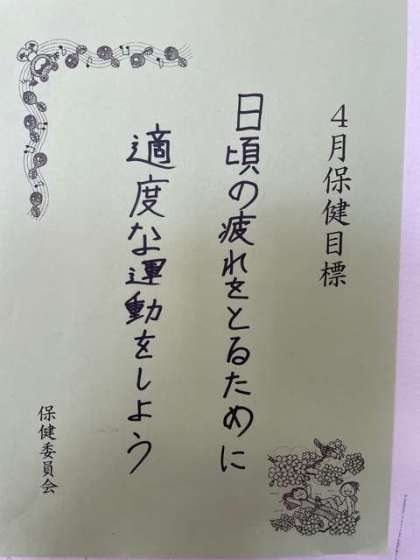 4月保健目標
日頃の疲れをとるために
適度な運動をしよう
保健委員会